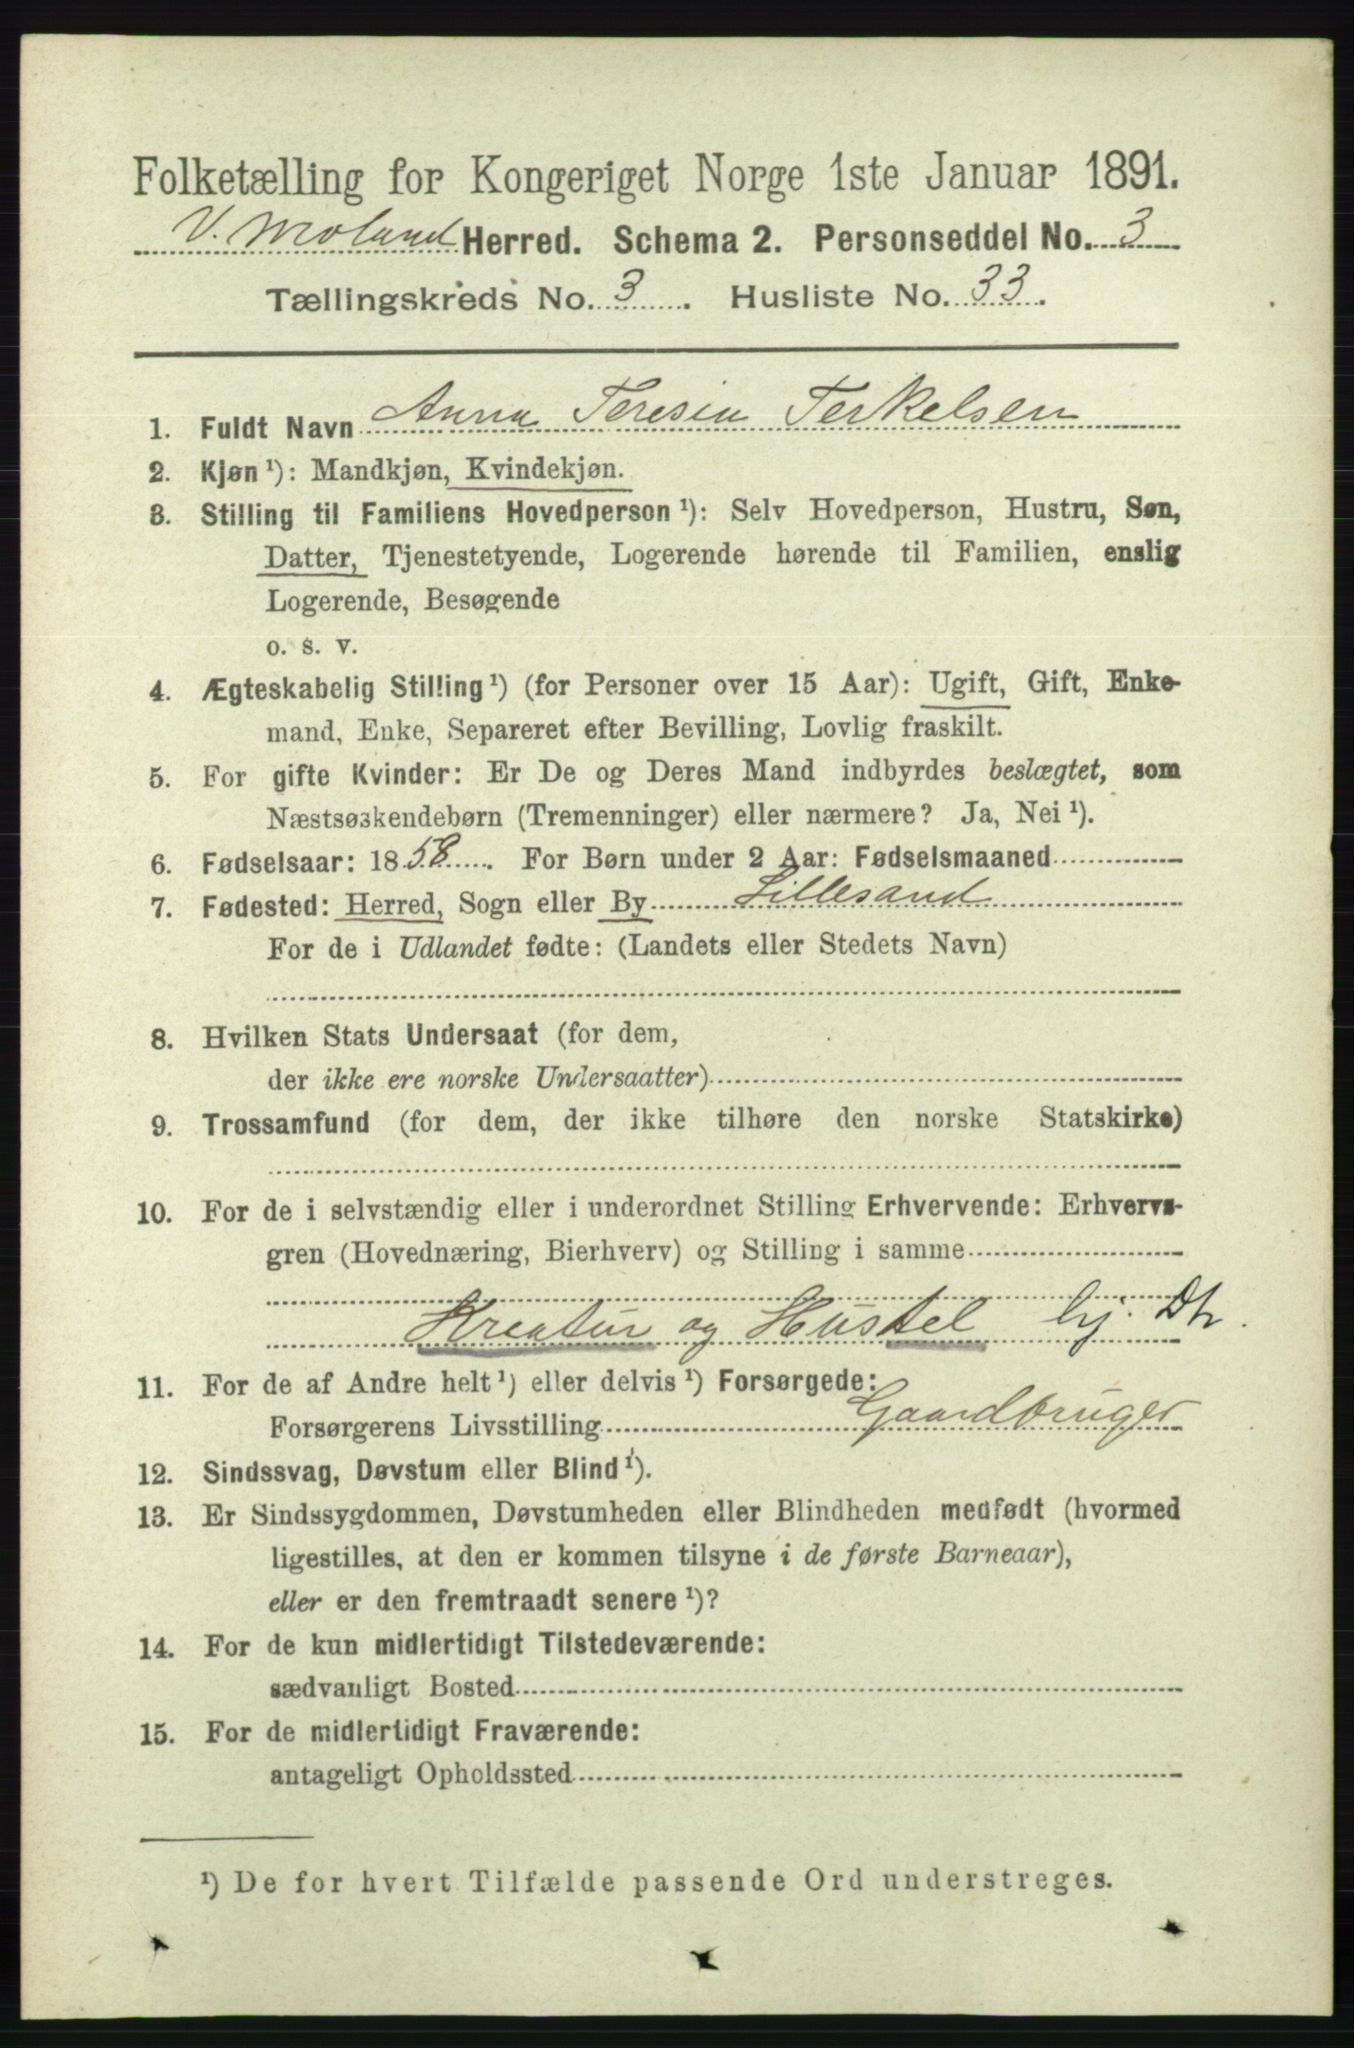 Folketælling for Kongeriget Norge 1ste Januar 1891.
V. Moland Herred. Schema 2. Personseddel No. 3
Tællingskreds No. 3. Husliste No. 33.
1. Fuldt Navn Anna Teresia Terkelsen
2. Kjøn ¹): Mandkjøn, Kvindekjøn.
3. Stilling til Familiens Hovedperson ¹): Selv Hovedperson, Hustru, Søn,
Datter, Tjenestetyende, Logerende hørende til Familien, enslig
Logerende, Besøgende
o. s. v.
4. Ægteskabelig Stilling ¹) (for Personer over 15 Aar): Ugift, Gift, Enke-
mand, Enke, Separeret efter Bevilling, Lovlig fraskilt.
5. For gifte Kvinder: Er De og Deres Mand indbyrdes beslægtet, som
Næstsøskendebørn (Tremenninger) eller nærmere? Ja, Nei ¹).
6. Fødselsaar: 1858. For Børn under 2 Aar: Fødselsmaaned
7. Fødested: Herred, Sogn eller By Lillesand
For de i Udlandet fødte: (Landets eller Stedets Navn)
8. Hvilken Stats Undersaat (for dem,
der ikke ere norske Undersaatter)
9. Trossamfund (for dem, der ikke tilhøre den norske Statskirke)
10. For de i selvstændig eller i underordnet Stilling Erhvervende: Erhvervs-
gren (Hovednæring, Bierhverv) og Stilling i samme
Kreatur og Hustel hj. Dtr.
11. For de af Andre helt ¹) eller delvis ¹) Forsørgede:
Forsørgerens Livsstilling Gaardbruger
12. Sindssvag, Døvstum eller Blind ¹).
13. Er Sindssygdommen, Døvstumheden eller Blindheden medfødt (hvormed
ligestilles, at den er kommen tilsyne i de første Barneaar),
eller er den fremtraadt senere ¹)?
14. For de kun midlertidigt Tilstedeværende:
sædvanligt Bosted
15. For de midlertidigt Fraværende:
antageligt Opholdssted
¹) De for hvert Tilfælde passende Ord understreges.